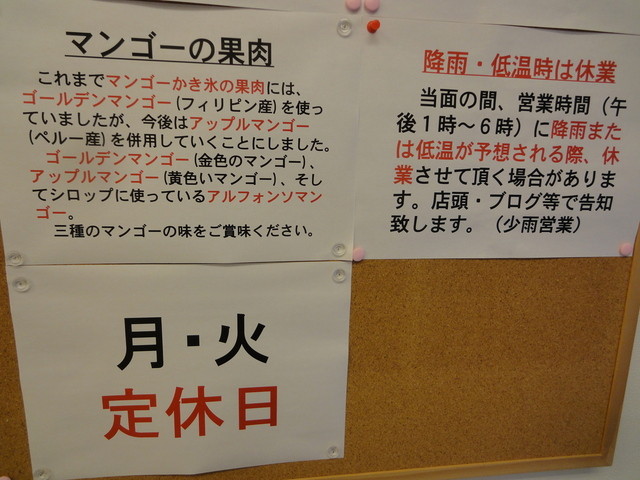 マンゴーの果肉
これまでマンゴーかき氷の果肉には、
ゴールデンマンゴー(フィリピン産)を使っ
ていましたが、今後はアップルマンゴー
(ペルー産)を併用していくことにしました。
ゴールデンマンゴー(金色のマンゴー)、
アップルマンゴー(黄色いマンゴー)、そし
てシロップに使っているアルフォンソマン
ゴー。
三種のマンゴーの味をご賞味ください。
降雨・低温時は休業
当面の間、営業時間(午
後1時~6時)に降雨また
は低温が予想される際、休
業させて頂く場合がありま
す。店頭・ブログ等で告知
致します。(少雨営業)
月・火
定休日